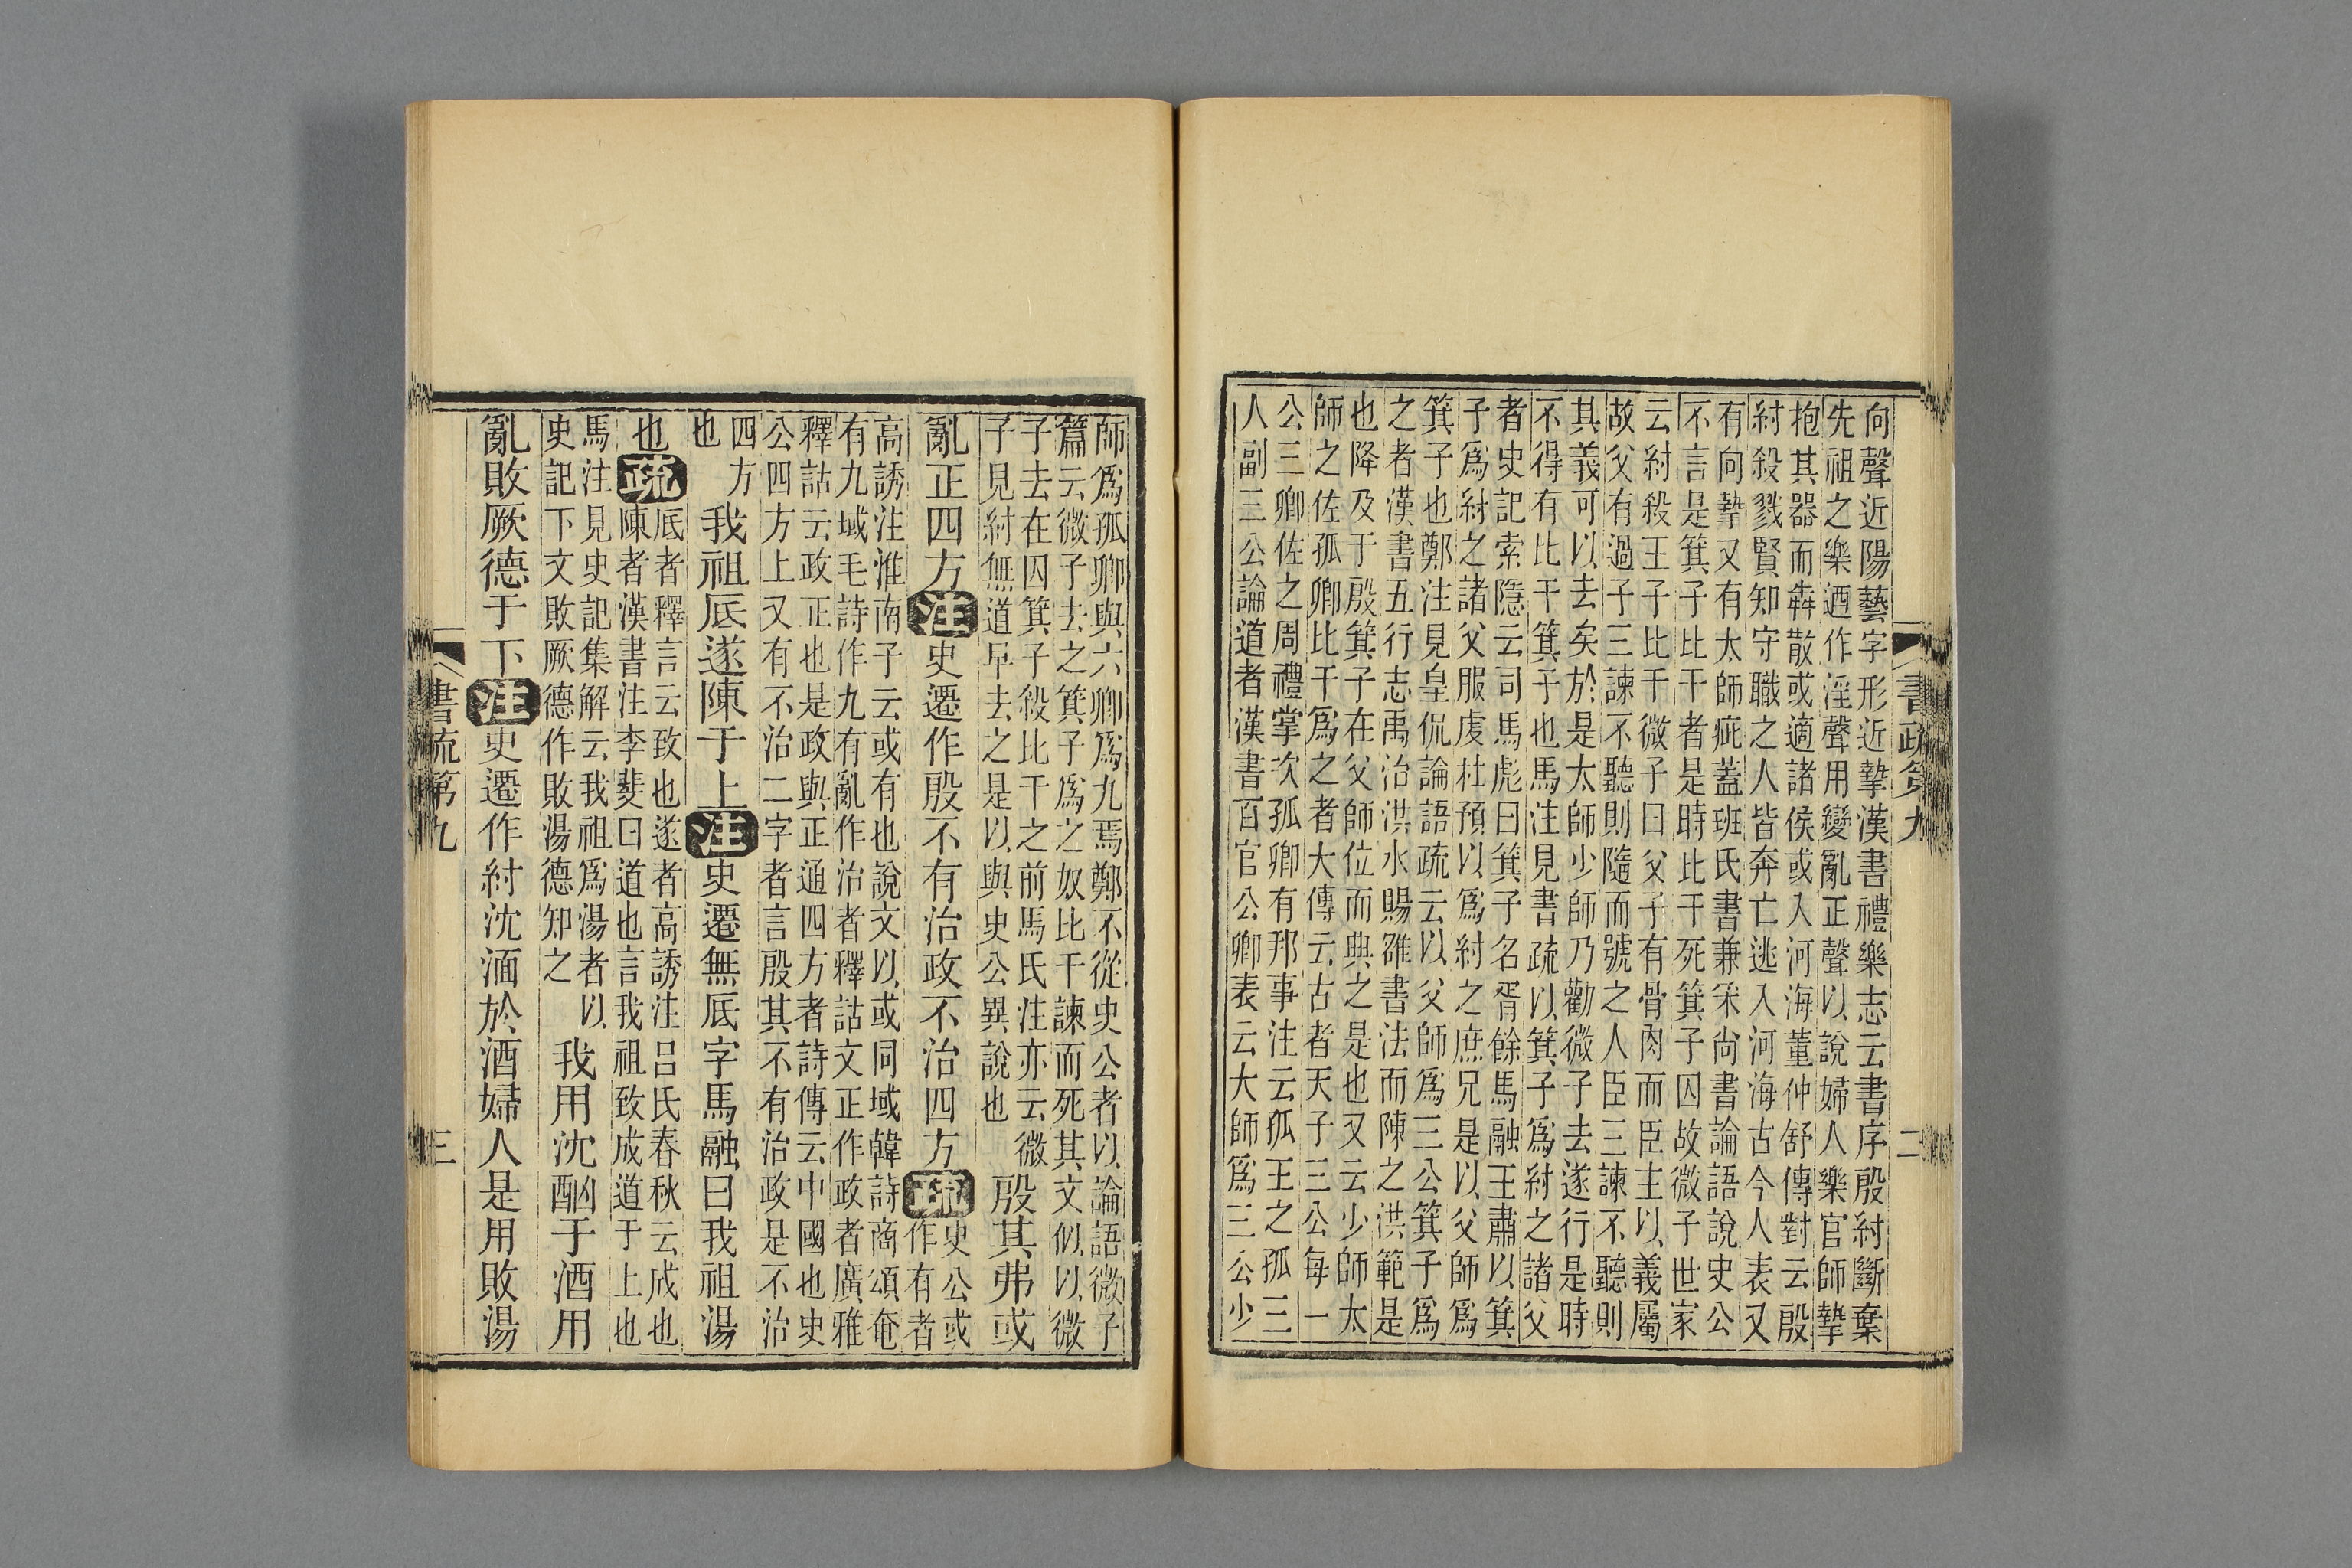 書疏第九
二
向聲近陽藝字形近摯漢書禮樂志云書序殷紂斷棄
先祖之樂迺作淫聲用變亂正聲以說婦人樂官師摯
抱其器而犇散或適諸侯或入河海董仲舒傳對云殷
紂殺戮賢知守職之人皆奔亡逃入河海古今人表又
有向摯又有太師疵蓋班氏書兼采尚書論語說史公
不言是箕子比干者是時比干死箕子囚故微子世家
云紂殺王子比干微子曰父子有骨肉而臣主以義屬
故父有過子三諫不聽則隨而號之人臣三諫不聽則
其義可以去矣於是太師少師乃勸微子去遂行是時
不得有比干箕子也馬注見書疏以箕子爲紂之諸父
者史記索隱云司馬彪曰箕子名胥餘馬融王肅以箕
子爲紂之諸父服虔杜預以爲紂之庶兄是以父師爲
箕子也鄭注見皇侃論語疏云以父師爲三公箕子爲
之者漢書五行志禹治洪水賜雒書法而陳之洪範是
也降及于殷箕子在父師位而典之是也又云少師太
師之佐孤卿比干爲之者大傳云古者天子三公每一
公三卿佐之周禮掌次孤卿有邦事注云孤王之孤三
人副三公論道者漢書百官公卿表云大師爲三公少
師爲孤卿與六卿爲九焉鄭不從史公者以論語微子
篇云微子去之箕子爲之奴比干諫而死其文似以微
子去在囚箕子殺比干之前馬氏注亦云微
子見紂無道早去之是以與史公異說也
殷其弗或
亂正四方注史遷作殷不有治政不治四方疏史公或
作有者
高誘注淮南子云或有也說文以或同域韓詩商頌奄
有九域毛詩作九有亂作治者釋詁文正作政者廣雅
釋詁云政正也是政與正通四方者詩傳云中國也史
公四方上又有不治二字者言殷其不有治政是不治
四方
也
我祖厎遂陳于上注史遷無厎字馬融曰我祖湯
也疏厎者釋言云致也遂者高誘注呂氏春秋云成也
陳者漢書注李斐曰道也言我祖致成道于上也
馬注見史記集解云我祖爲湯者以
史記下文敗厥德作敗湯德知之
我用沈酗于酒用
亂敗厥德于下注史遷作紂沈湎於酒婦人是用敗湯
書疏第九
三